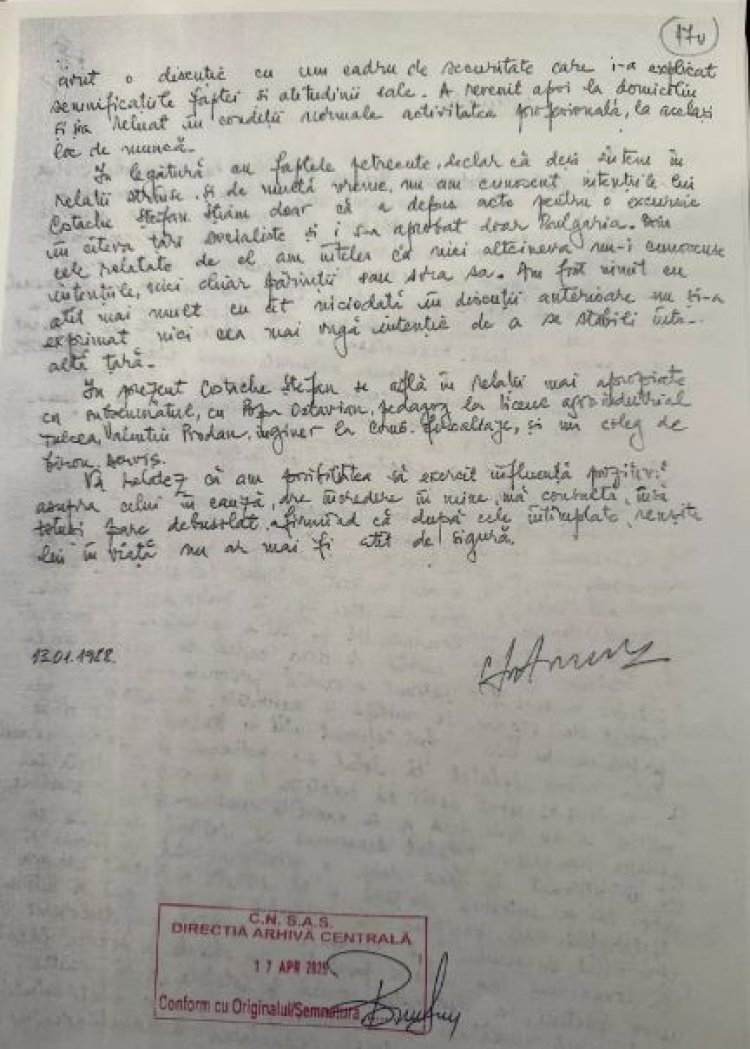 17v
avut o discuție cu un cadru de securitate care i-a explicat
semnificațiile faptei și atitudinii sale. A revenit apoi la domiciliu
și și-a reluat în condiții normale activitatea profesională, la același
loc de muncă.
În legătură cu faptele petrecute, declar că deși sîntem în
relații strînse și de multă vreme, nu am cunoscut intențiile lui
Costache Ștefan. Știam doar că a depus acte pentru o excursie
în cîteva țări socialiste și i s-a aprobat doar Bulgaria. Din
cele relatate de el am înțeles că nici altcineva nu-i cunoscuse
intențiile, nici chiar părinții sau sora sa. Am fost uimit cu
atît mai mult cu cît niciodată în discuții anterioare nu și-a
exprimat nici cea mai vagă intenție de a se stabili într-
altă țară.
În prezent Costache Ștefan se află în relații mai apropiate
cu subsemnatul, cu Octavian, pedagog la liceul agroindustrial
Tulcea, Valentin Prodan, inginer la și un coleg de
birou,
Vă relatez că am posibilitatea să exercit influență pozitivă
asupra celui în cauză, are încredere în mine, mă consultă, însă
totuși pare debusolat, afirmînd că după cele întîmplate, reușita
lui în viață nu ar mai fi atît de sigură.
13.01.1988.
C.N.S.A.S.
DIRECȚIA ARHIVĂ CENTRALĂ
17 APR 2025
Conform cu Originalul/Semnătura